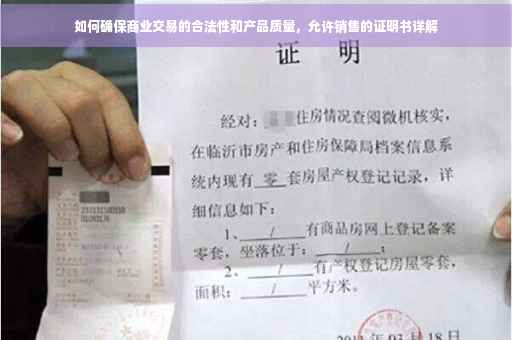 如何确保商业交易的合法性和产品质量，允许销售的证明书详解
证 明
经对：住房情况查阅微机核实，
在临沂市房产和住房保障局档案信息系
统内现有 零 套房屋产权登记记录，详
细信息如下：
1、 / 有商品房网上登记备案
零套，坐落位于： / ；
2、 / 有产权登记房屋零套，
面积： / 平方米。
03 月 18 日